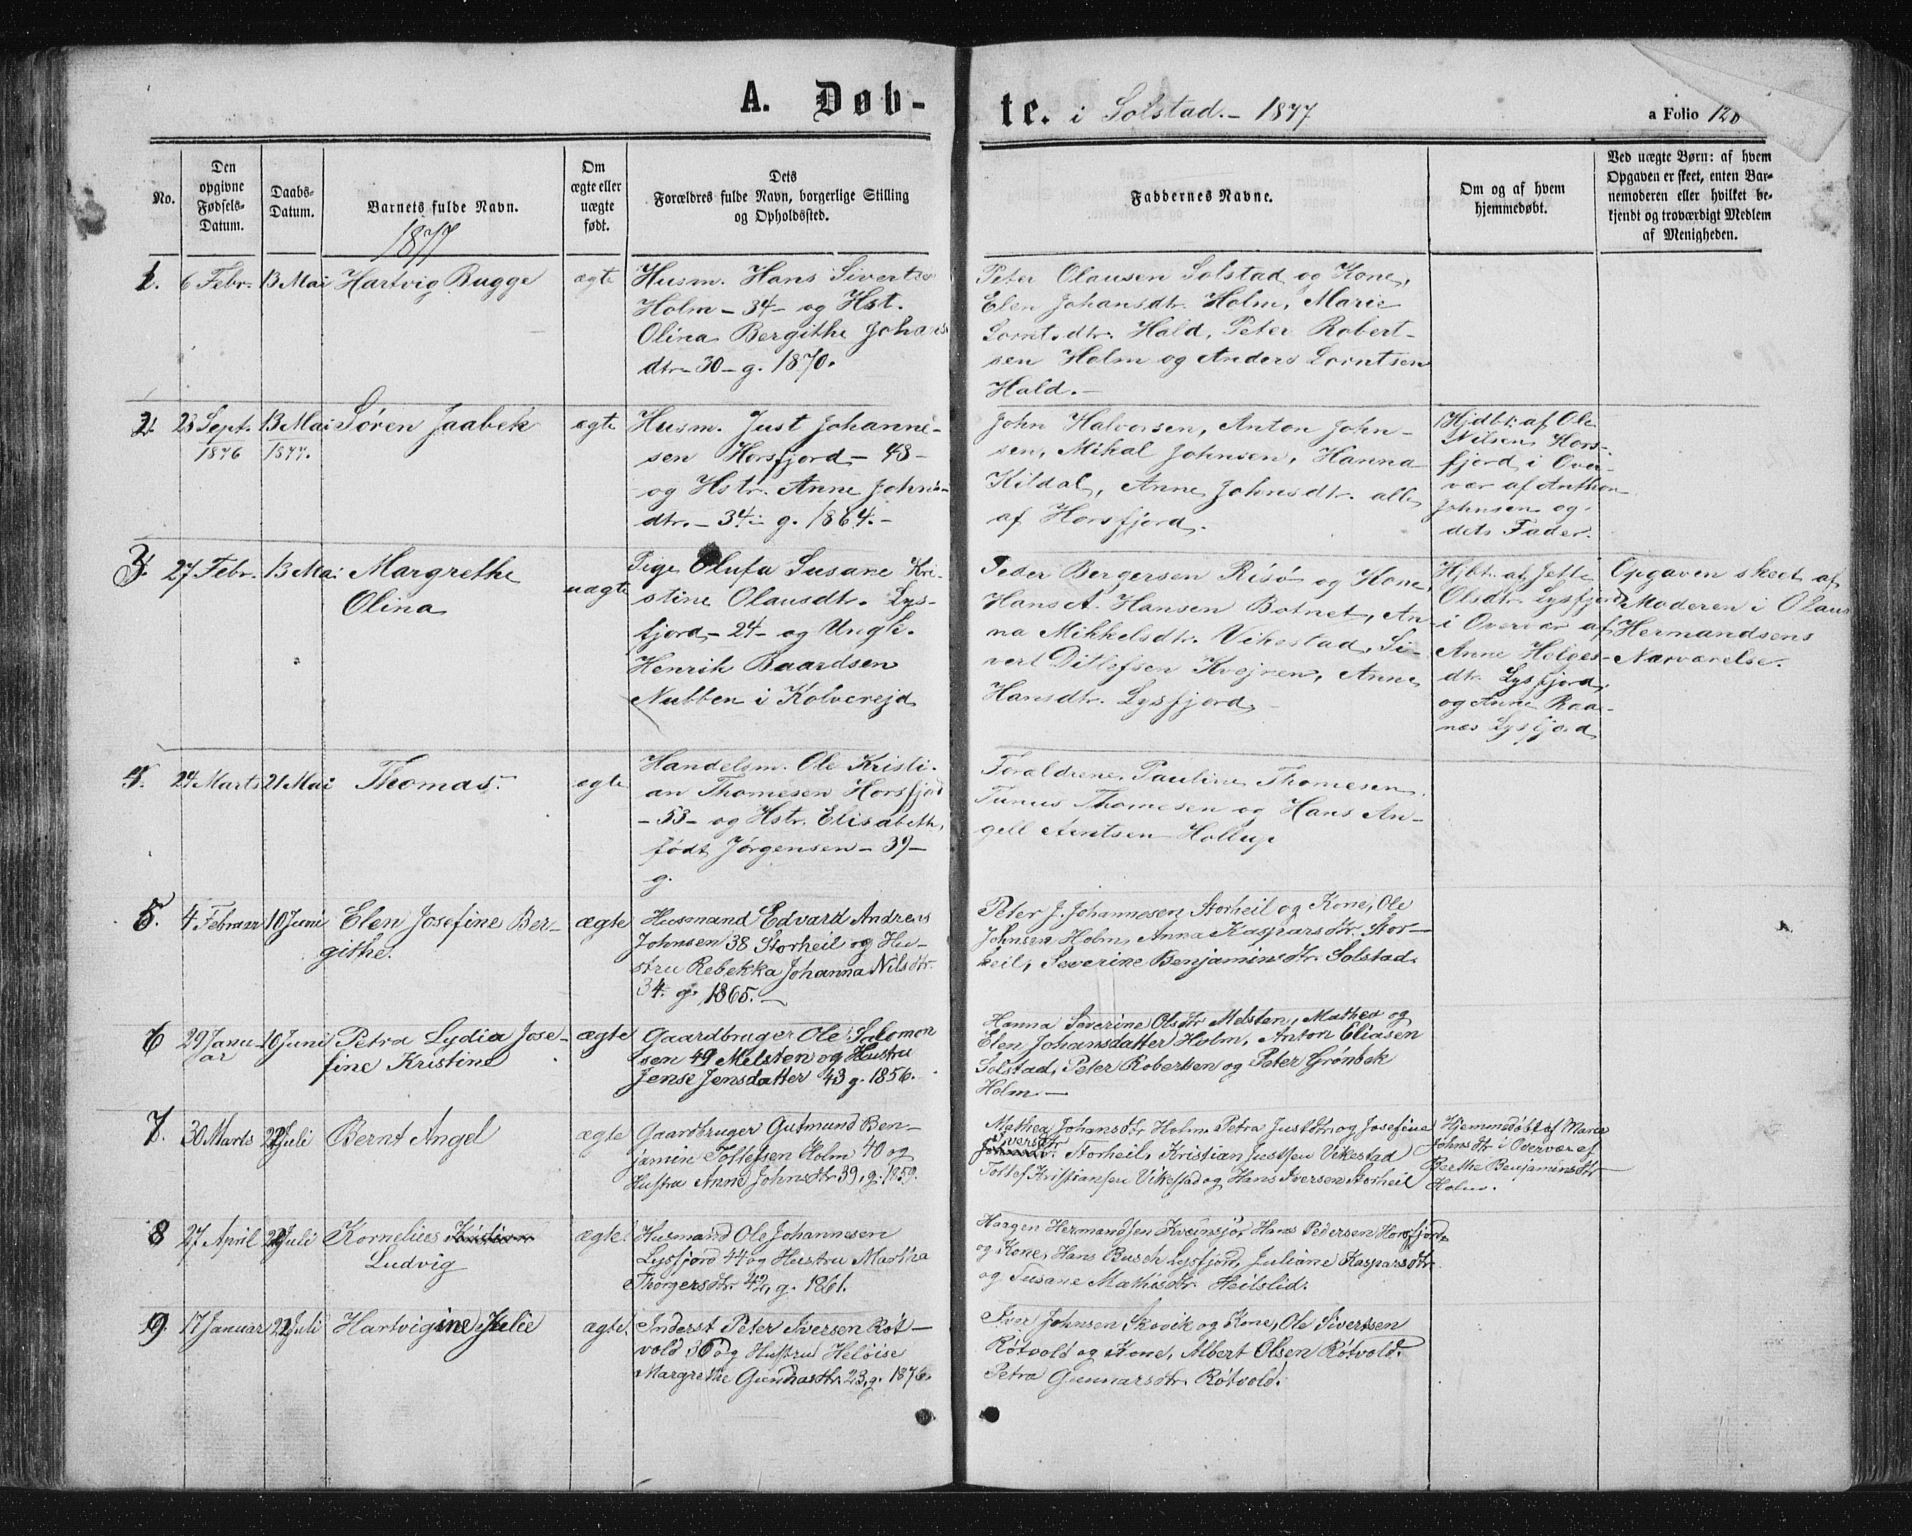 A. Døb-
te. i Solstad. - 1877
a Folio 120
No.
Den opgivne Fødsels-Datum.
Daabs-Datum.
Barnets fulde Navn.
Om ægte eller uægte født.
Dets Forældres fulde Navn, borgerlige Stilling og Opholdssted.
Faddernes Navne.
Om og af hvem hjemmedøbt.
Ved uægte Børn: af hvem
Opgaven er skeet, enten Bar-
nemoderen eller hvilket be-
kjendt og troværdigt Medlem
af Menigheden.
1877
1. 6 Febr. 13 Mai Hartvig Bugge ægte
Husm. Hans Sivertse
Holm - 34 - og Hst.
Olina Bergithe Johans
dtr - 30 - g. 1870.
Peter Olausen Solstad og Kone,
Elen Johansdtr. Holm, Marie
Lorntsdtr. Hald, Peter Robert-
sen Holm og Anders Lorntsen
Hald. -
2. 23 Sept. 1876 13 Mai 1877. Søren Jaabek ægte
Husm. Just Johanne-
sen Horsfjord - 48 -
og Hstr. Anne Johns-
dtr. - 34 - g. 1864. -
John Halvorsen, Anton John-
sen, Mikal Johnsen, Hanna
Kildal, Anne Johnsdtr. alle
af Horsfjord.
Hjdbt. af Ole
Nilsen Hors-
fjord i Over-
vær af Anthon
Johnsen og
dets Fader.
3. 27 Febr. 13 Mai Margrethe
Olina
uægte
Pige Olufa Susane Kri-
stine Olausdtr. Lys-
fjord - 24 - og Ungk.
Henrik Baardsen
Nubben i Kolverejd
Peder Bergersen Risø og Kone,
Hans A. Hansen Botnet, An-
na Mikkelsdtr. Vikestad, Si-
vert Ditlefsen Kvejren, Anne
Hansdtr. Lysfjord -
Hjbt. af Jette
Olsdtr. Lysfjord
i Overvær af
Anne Helges-
dtr. Lysfjord,
og Anne Raa-
nes Lysfjord
Opgaven skeet af
Moderen i Olaus
Hermandsens
Nærværelse.
4. 24 Marts 21 Mai Thomas. ægte
Handelsm. Ole Kristi-
an Thomesen Horsfjord
- 53 - og Hstr. Elisabeth,
født Jørgensen - 39 -
g.
Forældrene, Pauline Thomesen
Tunus Thomesen og Hans An-
gell Arntsen Hollup
5. 4 Februar 10 Juni Elen Josefine Ber-
githe.
ægte
Husmand Edvard Andreas
Johnsen 38 Storheil og Hu-
stru Rebekka Johanna Nilsdtr.
34. g. 1865. -
Peter J. Johannesen Storheil og Kone, Ole
Johnsen Holm, Anna Kasparsdtr. Stor-
heil, Severine Benjaminsdtr. Solstad.
6 29 Janu-
ar
10 Juni Petra Lydia Jose-
fine Kristine
ægte
Gaardbruger Ole Salomon
sen 49 Melsten og Hustru
Jense Jensdatter 43 g. 1856.
Hanna Severine Olsdtr Melsten, Mathea og
Elen Johansdatter Holm, Anton Eliasen
Solstad, Peter Robertsen og Peter Grønbek
Holm -
7. 30 Marts 22 Juli Bernt Angel ægte
Gaardbruger Gutmund Ben-
jamin Tollefsen Holm 40 og
Hustru Anne Johnsdtr. 39, g. 1859.
Mathea Johansdtr Holm, Petra Justdtr og Josefine
Iversdtr
Storheil, Kristian Justsen Vikestad
Tollef Kristiansen Vikestad og Hans Iversen Storheil
Hjemmedøbt af Maria
Johnsdtr i Overvær af
Berthe Benjaminsdtr
Holm.
8 27 April 22 Juli Kornelius Kristian
Ludvig
ægte
Husmand Ole Johannesen
Lysfjord 44 og Hustru Martha
Thorgersdtr 42, g. 1861.
Haagen Hermandsen Kveinsjø, Hans Pedersen Horsfjord
og Kone, Hans Busch Lysfjord, Juliane Kasparsdtr
og Susane Mathisdtr. Heilslid.
9. 17 Januar 22 Juli Hartvigine Julie ægte.
Inderst Peter Iversen Røt-
vold 36 og Hustru Heloise
Margrethe Gunnarsdtr. 23, g. 1876.
Iver Johnsen Skovik og Kone, Ole Sivertsen
Røtvold og Kone, Albert Olsen Røtvold.
Petra Gunnarsdtr. Røtvold.